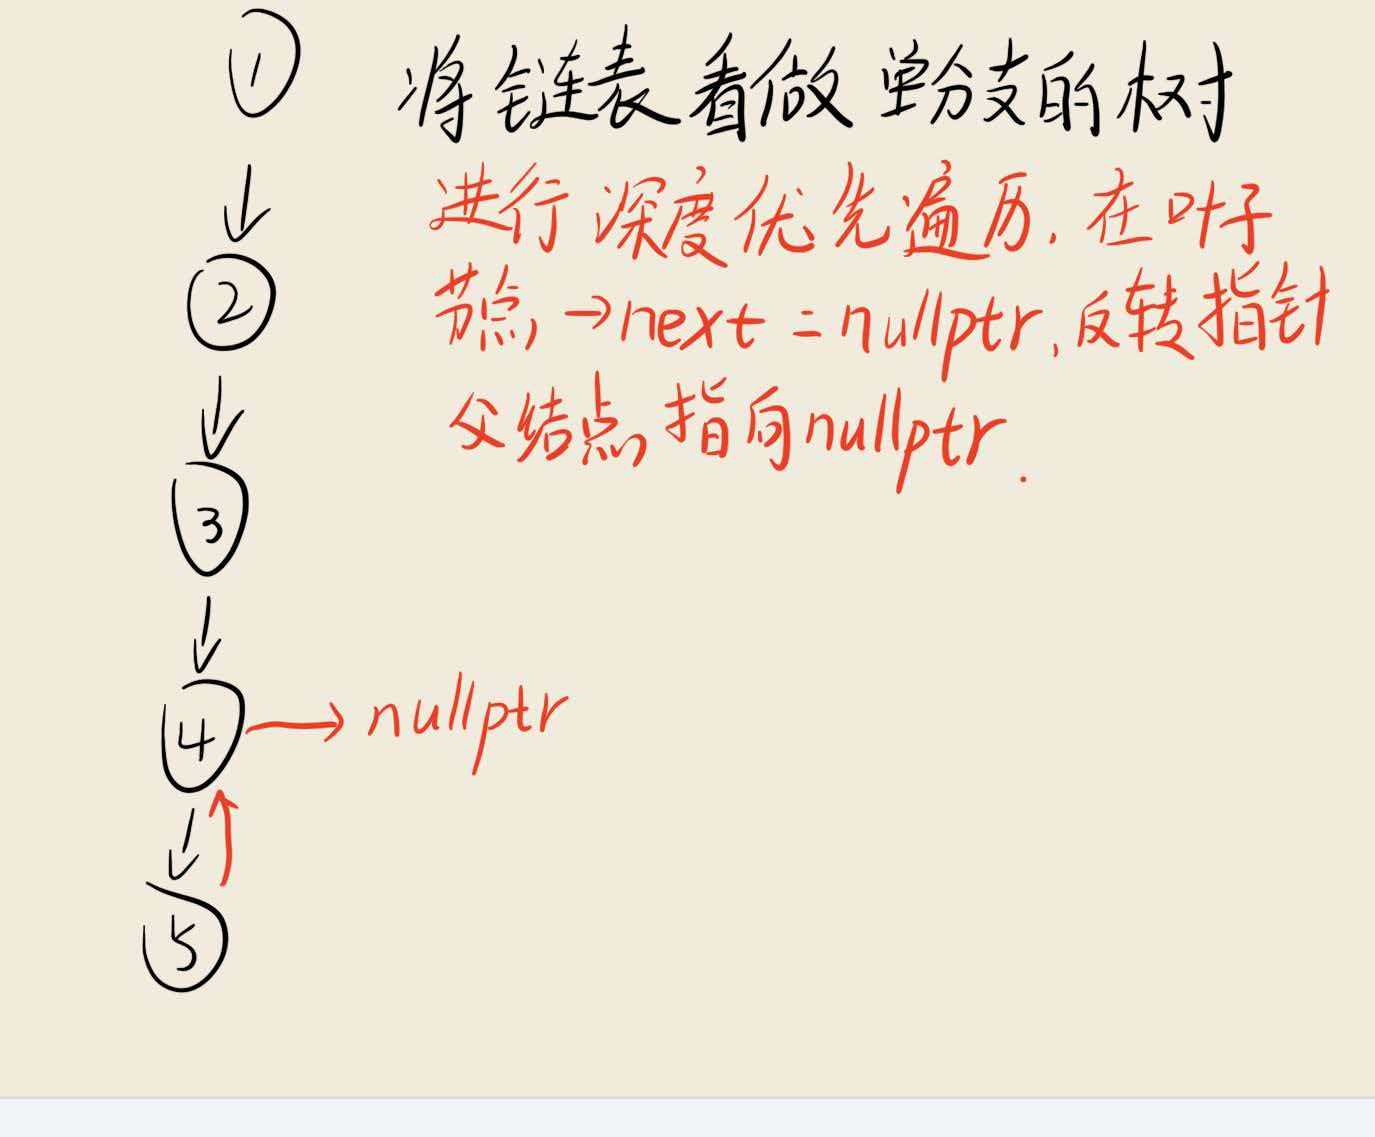 1
将链表看做单分支的树
进行深度优先遍历. 在叶子
节点→next = nullptr, 反转指针
父结点指向nullptr.
2
3
4 → nullptr
5